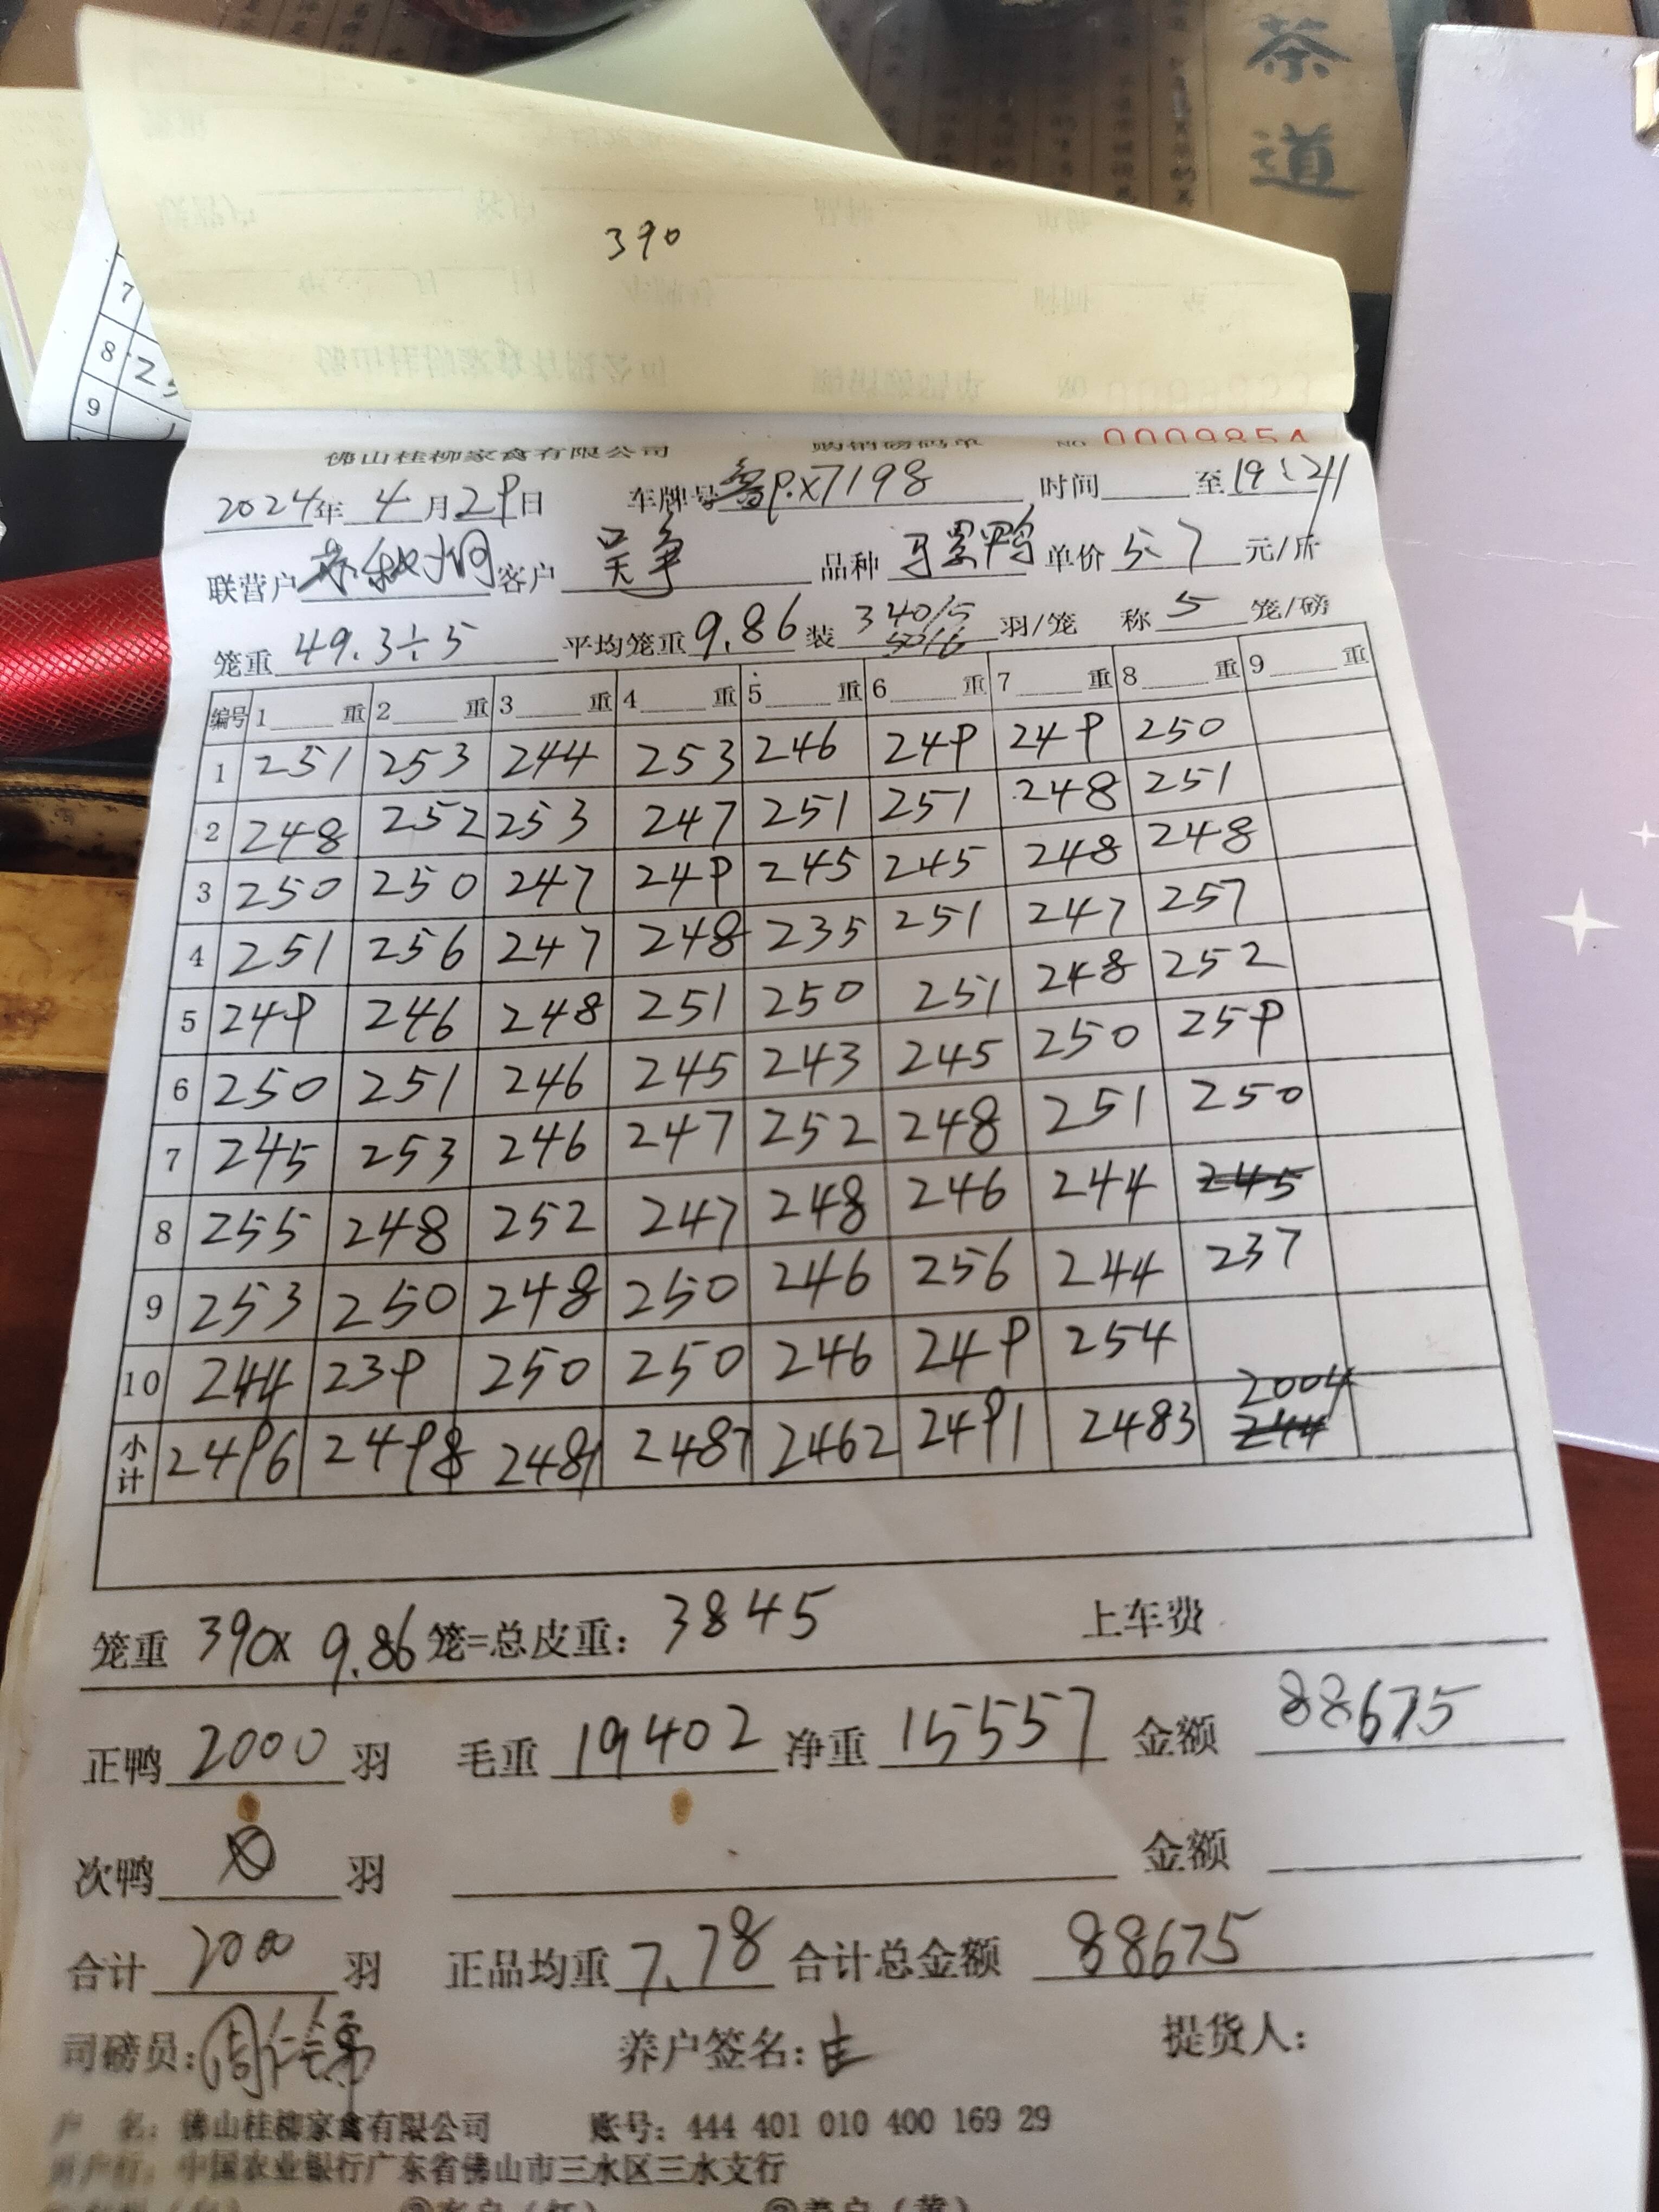 茶
道
390
7
8
9
佛山桂柳家禽有限公司 购销磅码单 NO 0009854
2024年 4 月 29 日 车牌号 鲁P.X7198 时间 至 19:41
联营户 客户 吴争 品种 单价 5.7 元/斤
笼重 49.3÷5 平均笼重 9.86 装 340/5 50/6 羽/笼 称 5 笼/磅
编号 1 重 2 重 3 重 4 重 5 重 6 重 7 重 8 重 9 重
1 251 253 244 253 246 249 249 250
2 248 252 253 247 251 251 248 251
3 250 250 247 249 245 245 248 248
4 251 256 247 248 235 251 247 257
5 249 246 248 251 250 251 248 252
6 250 251 246 245 243 245 250 259
7 245 253 246 247 252 248 251 250
8 255 248 252 247 248 246 244 245
9 253 250 248 250 246 256 244 237
10 244 239 250 250 246 249 254
小计 2496 2498 2481 2487 2462 2491 2483 2004 244
笼重 390 x 9.86 笼=总皮重: 3845 上车费
正鸭 2000 羽 毛重 19402 净重 15557 金额 88675
次鸭 0 羽 金额
合计 2000 羽 正品均重 7.78 合计总金额 88675
司磅员: 养户签名: 提货人:
户 名: 佛山桂柳家禽有限公司 账号: 444 401 010 400 169 29
开户行: 中国农业银行广东省佛山市三水区三水支行
②客户(红) ③养户(黄)